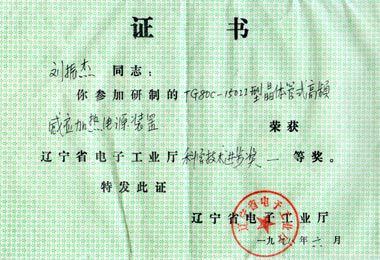 证 书
刘振杰 同志：
你参加研制的TG80C-1502J型晶体管式高频
感应加热电源装置 荣获
辽宁省电子工业厅科学技术进步奖一等奖。
特发此证
辽宁省电子工业厅
一九九 年六月
辽宁省电子工业厅